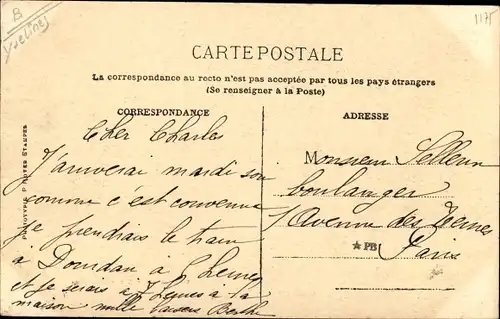 B
Yvelines
1175
CARTE POSTALE
La correspondance au recto n'est pas acceptée par tous les pays étrangers
(Se renseigner à la Poste)
CORRESPONDANCE
ADRESSE
Cher Charles
J'arriverai mardi soir
comme c'est convenu
je prendrais le train
à Dourdan à heures
et je serais à 7 heures à la
maison mille baisers Berthe
Monsieur
boulanger
Avenue des Ternes
Paris
PB